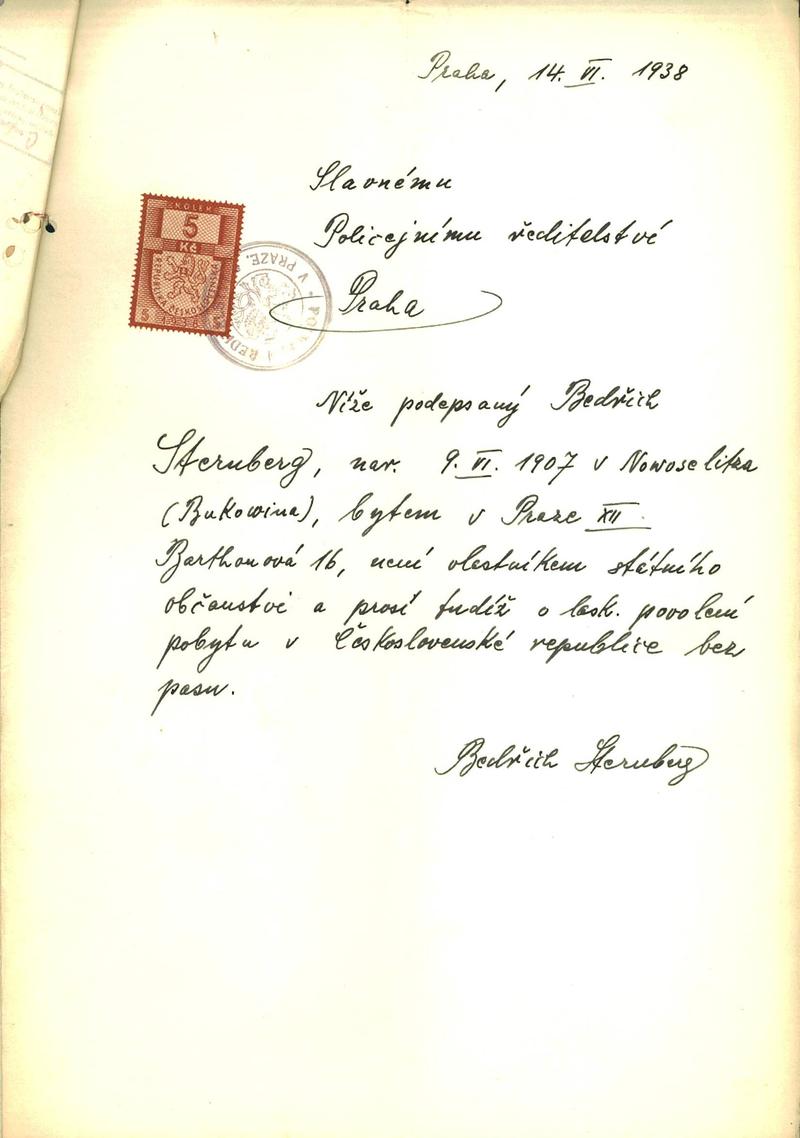 Praha, 14. VI. 1938
Slavnému
Policejnímu ředitelství
Praha
KOLEK
5
Kč
REPUBLIKA ČESKOSLOVENSKÁ
5 5
V PRAZE.
Níže podepsaný Bedřich
Sternberg, nar. 9. VI. 1907 v Nowoselitza
(Bukowina), bytem v Praze XII.
Barthonová 16, není vlastníkem státního
občanství a prosí tudíž o lask. povolení
pobytu v Československé republice bez
pasu.
Bedřich Sternberg